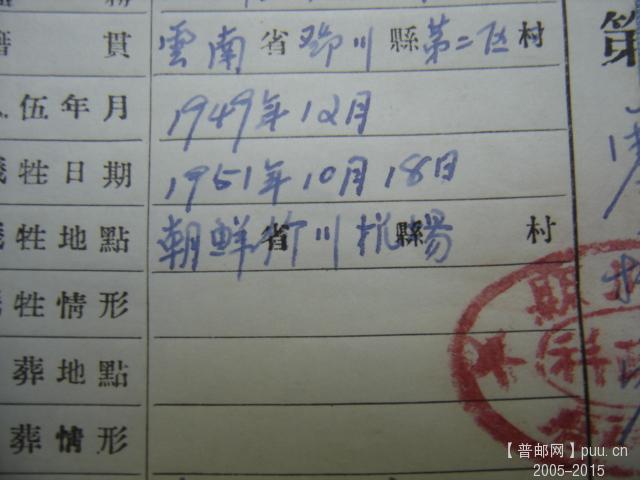 貫 雲南省鄧川縣第二区村
第
伍年月 1949年12月
牲日期 1951年10月18日
牲地點 朝鮮 省 川機 縣 場 村
牲情形
葬地點
葬情形
科
【普邮网】puu.cn
2005-2015